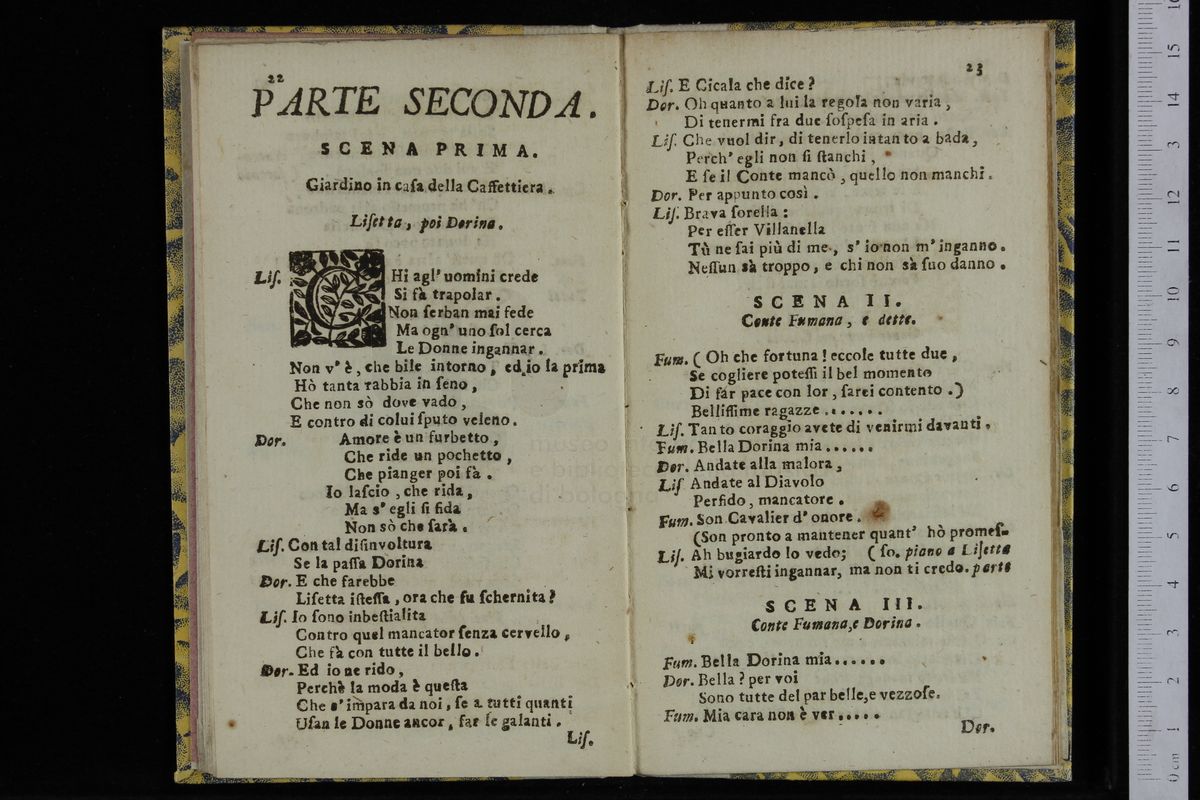 22
PARTE SECONDA.
SCENA PRIMA.
Giardino in caſa della Caffettiera.
Liſetta, poi Dorina.
Liſ. CHi agl' uomini crede
Si fà trapolar.
Non ſerban mai fede
Ma ogn' uno ſol cerca
Le Donne ingannar.
Non v' è, che bile intorno, ed io la prima
Hò tanta rabbia in ſeno,
Che non sò dove vado,
E contro di colui ſputo veleno.
Dor. Amore è un furbetto,
Che ride un pochetto,
Che pianger poi fà.
Io laſcio, che rida,
Ma s' egli ſi fida
Non sò che farà.
Liſ. Con tal diſinvoltura
Se la paſſa Dorina
Dor. E che farebbe
Liſetta iſteſſa, ora che fu ſchernita?
Liſ. Io ſono inbeſtialita
Contro quel mancator ſenza cervello,
Che fà con tutte il bello.
Dor. Ed io ne rido,
Perchè la moda è queſta
Che s' impara da noi, ſe a tutti quanti
Uſan le Donne ancor, far le galanti.
Liſ.
23
Liſ. E Cicala che dice?
Dor. Oh quanto a lui la regola non varia,
Di tenermi fra due ſoſpeſa in aria.
Liſ. Che vuol dir, di tenerlo intanto a bada,
Perch' egli non ſi ſtanchi,
E ſe il Conte mancò, quello non manchi.
Dor. Per appunto così.
Liſ. Brava ſorella:
Per eſſer Villanella
Tù ne ſai più di me, s' io non m' inganno.
Neſſun sà troppo, e chi non sà ſuo danno.
SCENA II.
Conte Fumana, e dette.
Fum. (Oh che fortuna! eccole tutte due,
Se cogliere poteſſi il bel momento
Di far pace con lor, ſarei contento.)
Belliſſime ragazze.......
Liſ. Tanto coraggio avete di venirmi davanti.
Fum. Bella Dorina mia......
Dor. Andate alla malora,
Liſ Andate al Diavolo
Perfido, mancatore.
Fum. Son Cavalier d' onore.
(Son pronto a mantener quant' hò promeſ-
Liſ. Ah bugiardo lo vedo; (ſo. piano a Liſetta
Mi vorreſti ingannar, ma non ti credo. parte
SCENA III.
Conte Fumana, e Dorina.
Fum. Bella Dorina mia......
Dor. Bella? per voi
Sono tutte del par belle, e vezzoſe.
Fum. Mia cara non è ver.....
Dor.